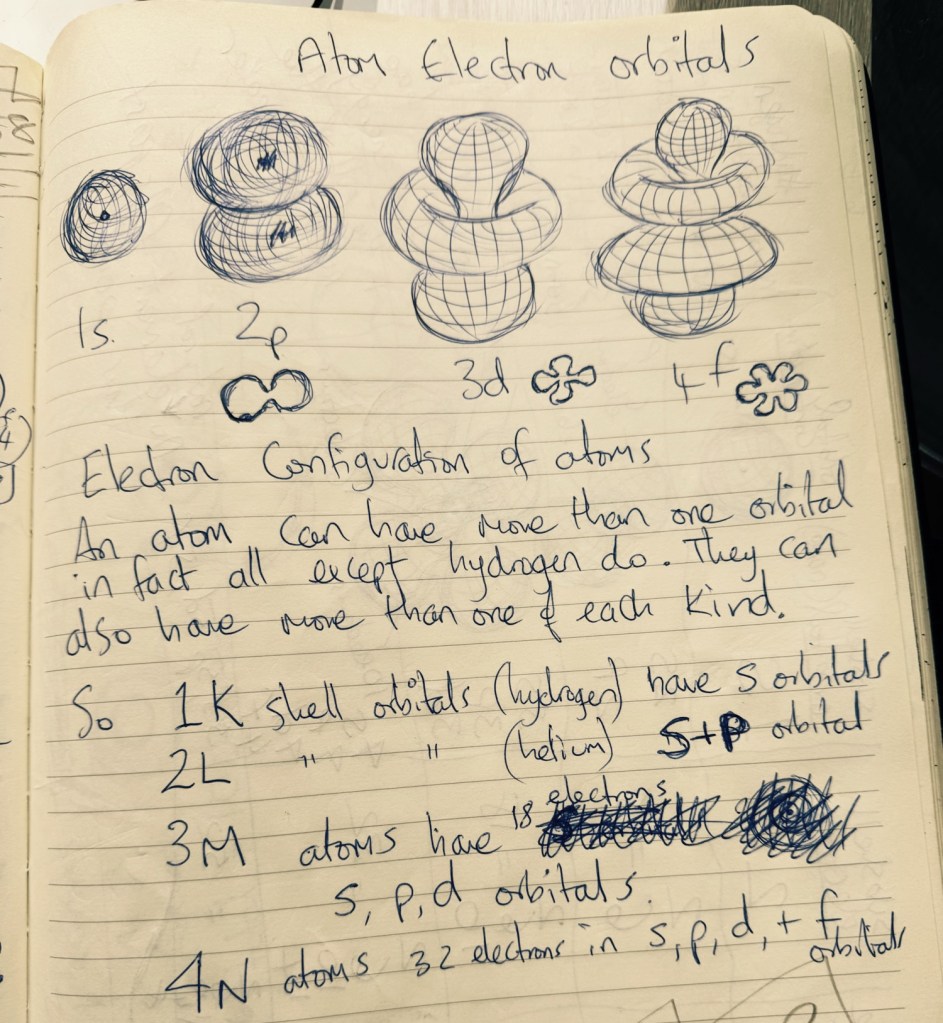 Atom Electron orbitals
1s.
2p
3d
4f
Electron Configuration of atoms
An atom can have more than one orbital
in fact all except hydrogen do. They can
also have more than one of each kind.
So 1K shell orbitals (hydrogen) have s orbitals
2L " " (helium) S+P orbital
3M atoms have 18 electrons
s, p, d orbitals.
4N atoms 32 electrons in s, p, d, + f
orbitals